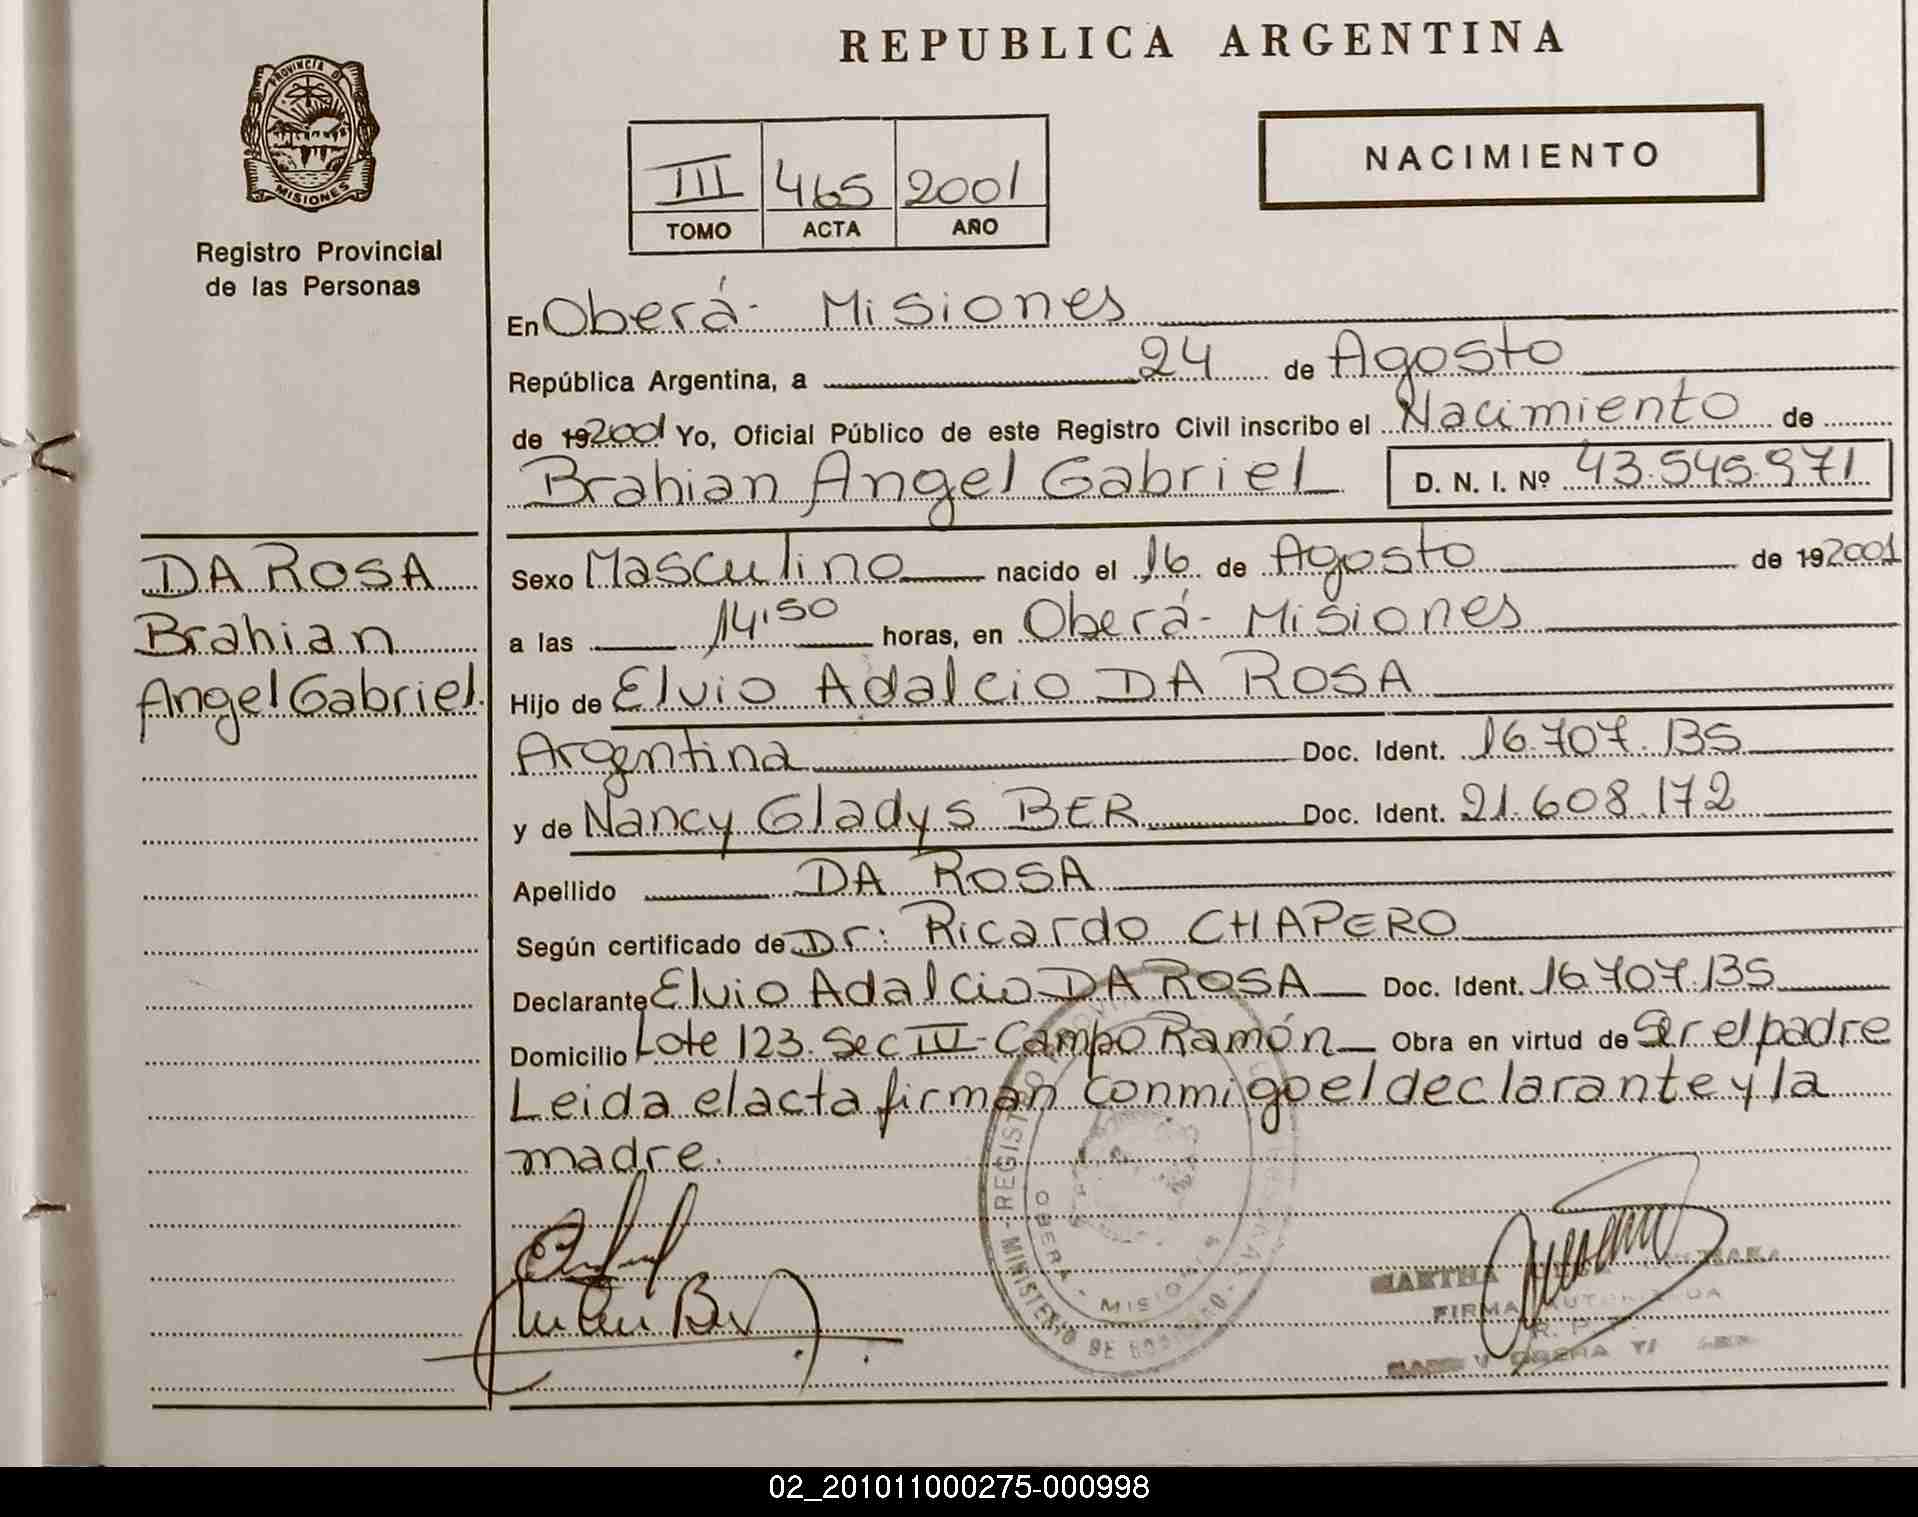 REPUBLICA ARGENTINA
PROVINCIA DE
MISIONES
Registro Provincial
de las Personas
III 465 2001
TOMO ACTA AÑO
NACIMIENTO
En Oberá - Misiones
República Argentina, a 24 de Agosto
de 192001 Yo, Oficial Público de este Registro Civil inscribo el Nacimiento de
Brahian Angel Gabriel D. N. I. Nº 43.545.971
DA ROSA
Brahian
Angel Gabriel.
Sexo Masculino nacido el 16 de Agosto de 192001
a las 14,50 horas, en Oberá - Misiones
Hijo de Elvio Adalcio DA ROSA
Argentina Doc. Ident. 16.707.135
y de Nancy Gladys BER Doc. Ident. 21.608.172
Apellido DA ROSA
Según certificado de Dr: Ricardo CHAPERO
Declarante Elvio Adalcio DA ROSA Doc. Ident. 16.707.135
Domicilio Lote 123. Sec IV - Campo Ramón Obra en virtud de Ser el padre
Leida el acta firman conmigo el declarante y la
madre.
OBERA - MISIONES
MINISTERIO DE GOBIERNO
MARTHA
FIRMA AUTORIZADA
R. P.
02_201011000275-000998